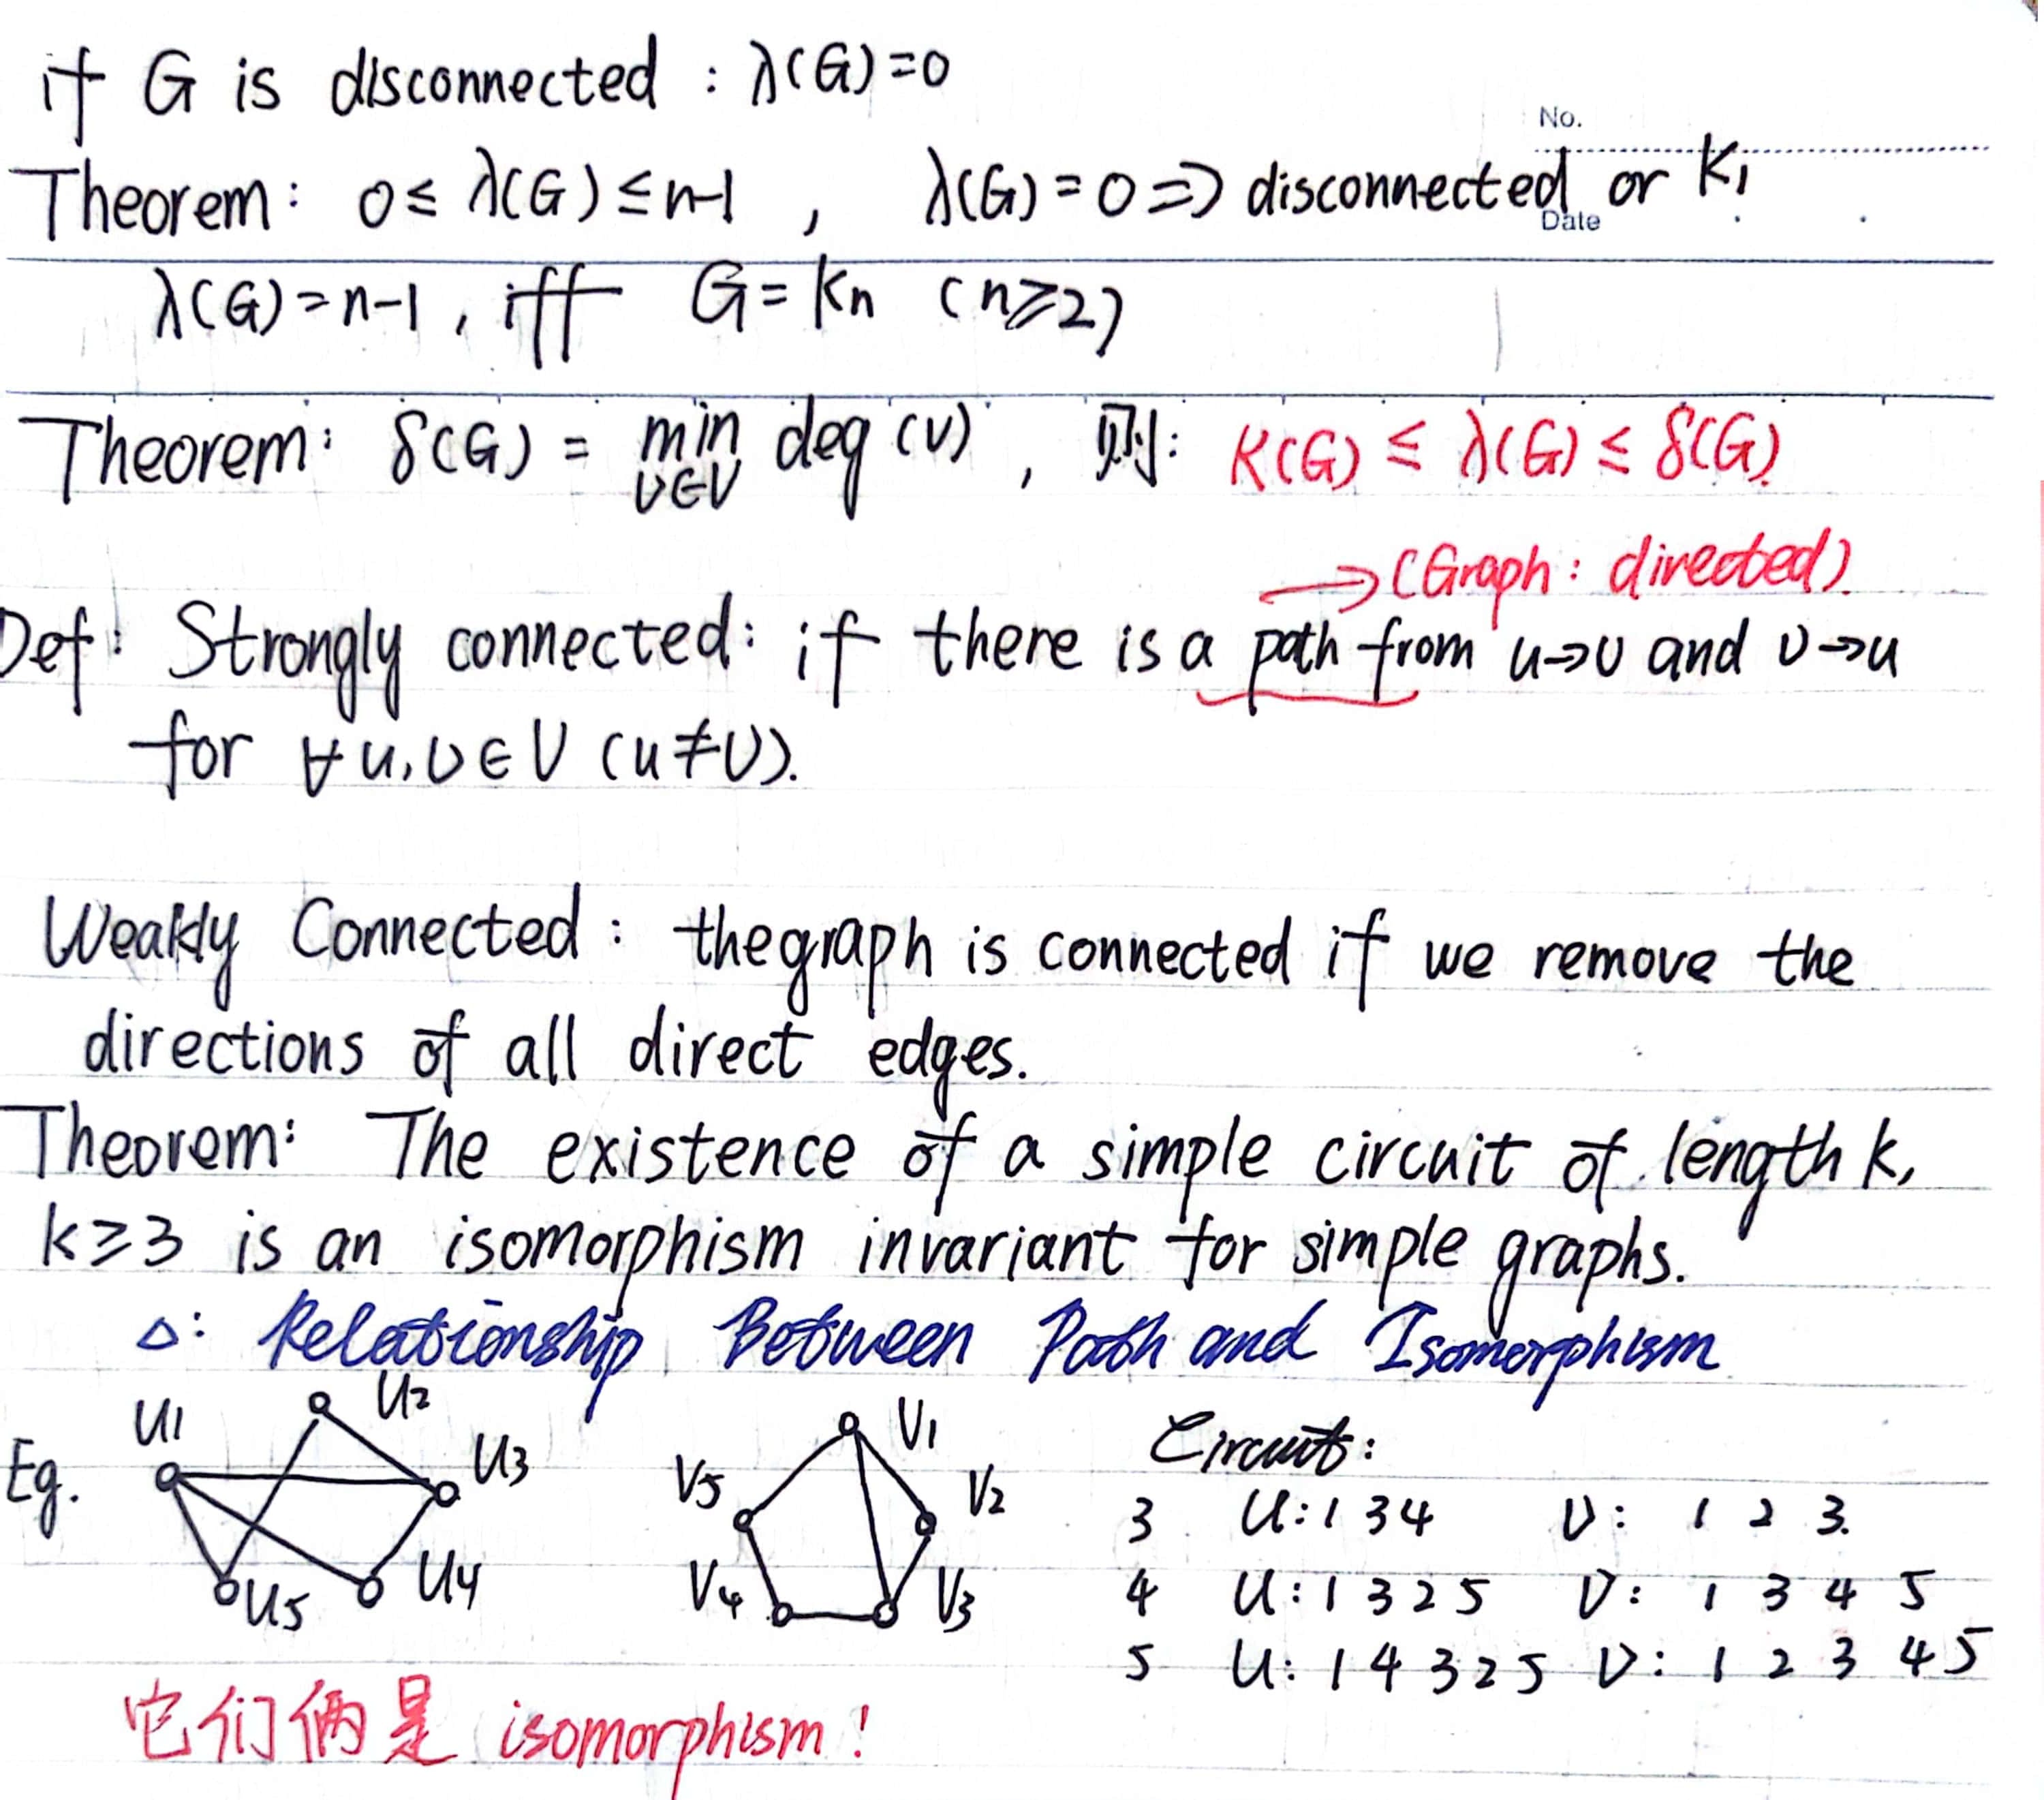 if G is disconnected : λ(G)=0
No.
Theorem: 0≤ λ(G) ≤n-1 , λ(G)=0 => disconnected or K₁
Date
λ(G)=n-1, iff G=Kn (n≥2)
Theorem: δ(G) = min deg(v), 则: κ(G) ≤ λ(G) ≤ δ(G).
v∈V
→(Graph: directed).
Def: Strongly connected: if there is a path from u→v and v→u
for ∀u,v∈V (u≠v).
Weakly Connected: the graph is connected if we remove the
directions of all direct edges.
Theorem: The existence of a simple circuit of length k,
k≥3 is an isomorphism invariant for simple graphs.
△: Relationship Between Path and Isomorphism
Eg. U1 U2 U3 U4 U5
V1 V2 V3 V4 V5
Circuit:
3 U: 1 3 4 V: 1 2 3.
4 U: 1 3 2 5 V: 1 3 4 5
5 U: 1 4 3 2 5 V: 1 2 3 4 5
它们俩是 isomorphism!